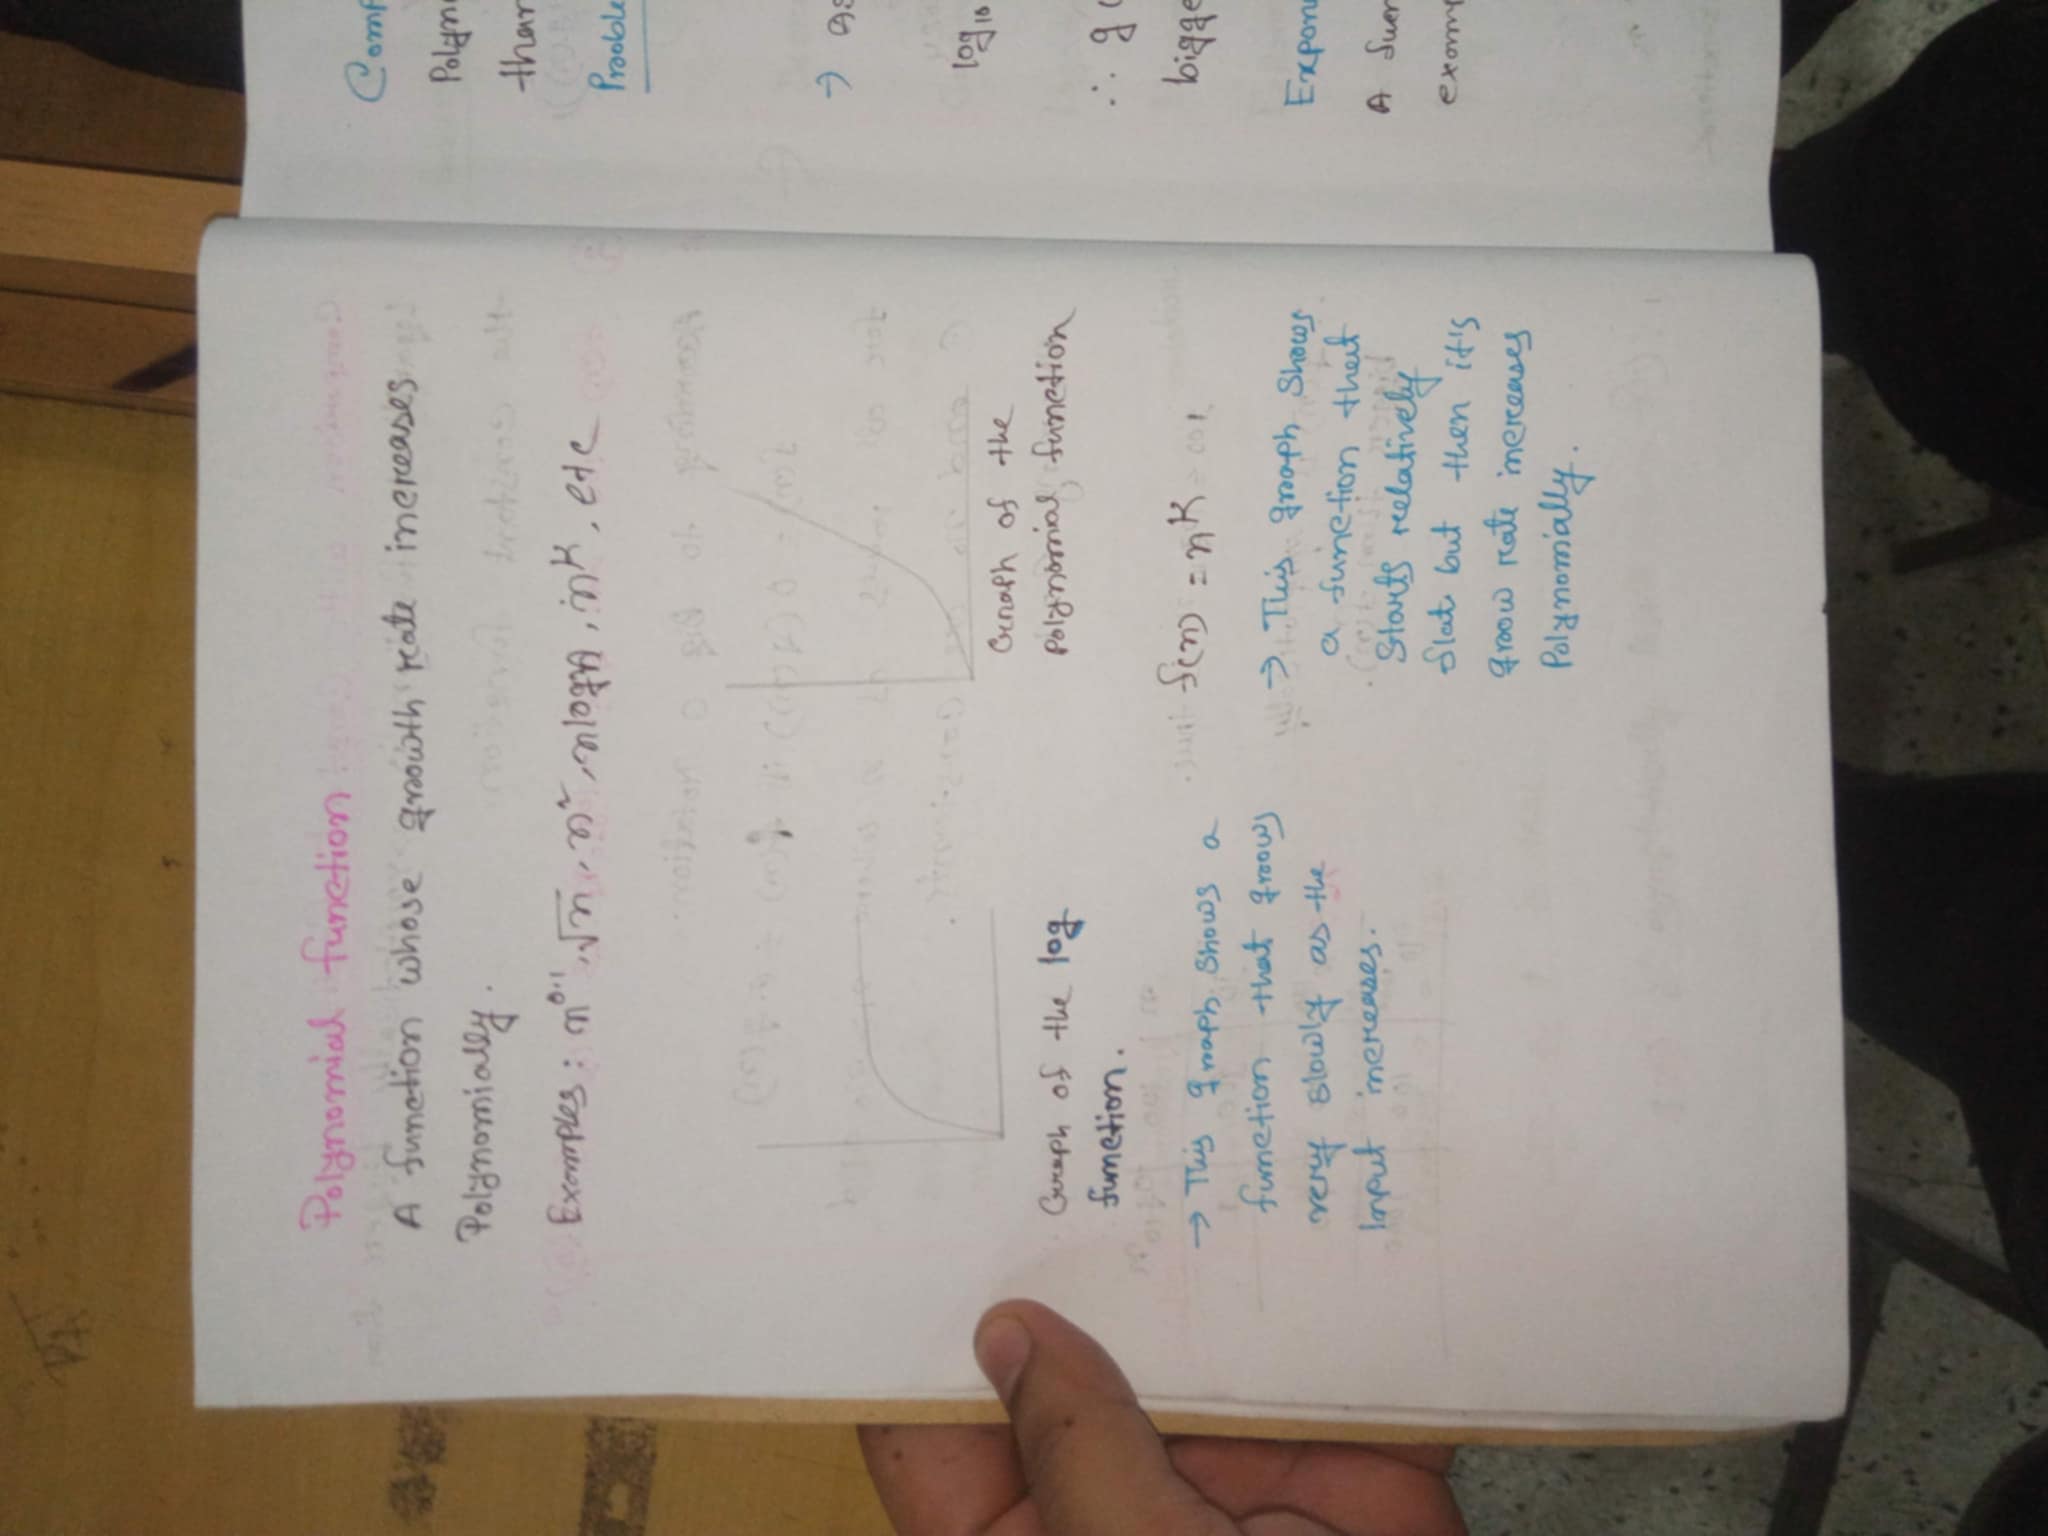 Polynomial function
A function whose growth rate increases
Polynomially.
Examples: n^0.1, √n, n², nlogn, n^k, etc
Graph of the log
function.
→ This graph shows a
function that grows
very slowly as the
Input increases.
Graph of the
polynomial function
f(n) = n^k
→ This graph shows
a function that
starts relatively
flat but then it's
grow rate increases
Polynomially.
Comp
Polyn
than
Proble
→ as
log₁₀
∴ g(
bigge
Expon
A fun
examp